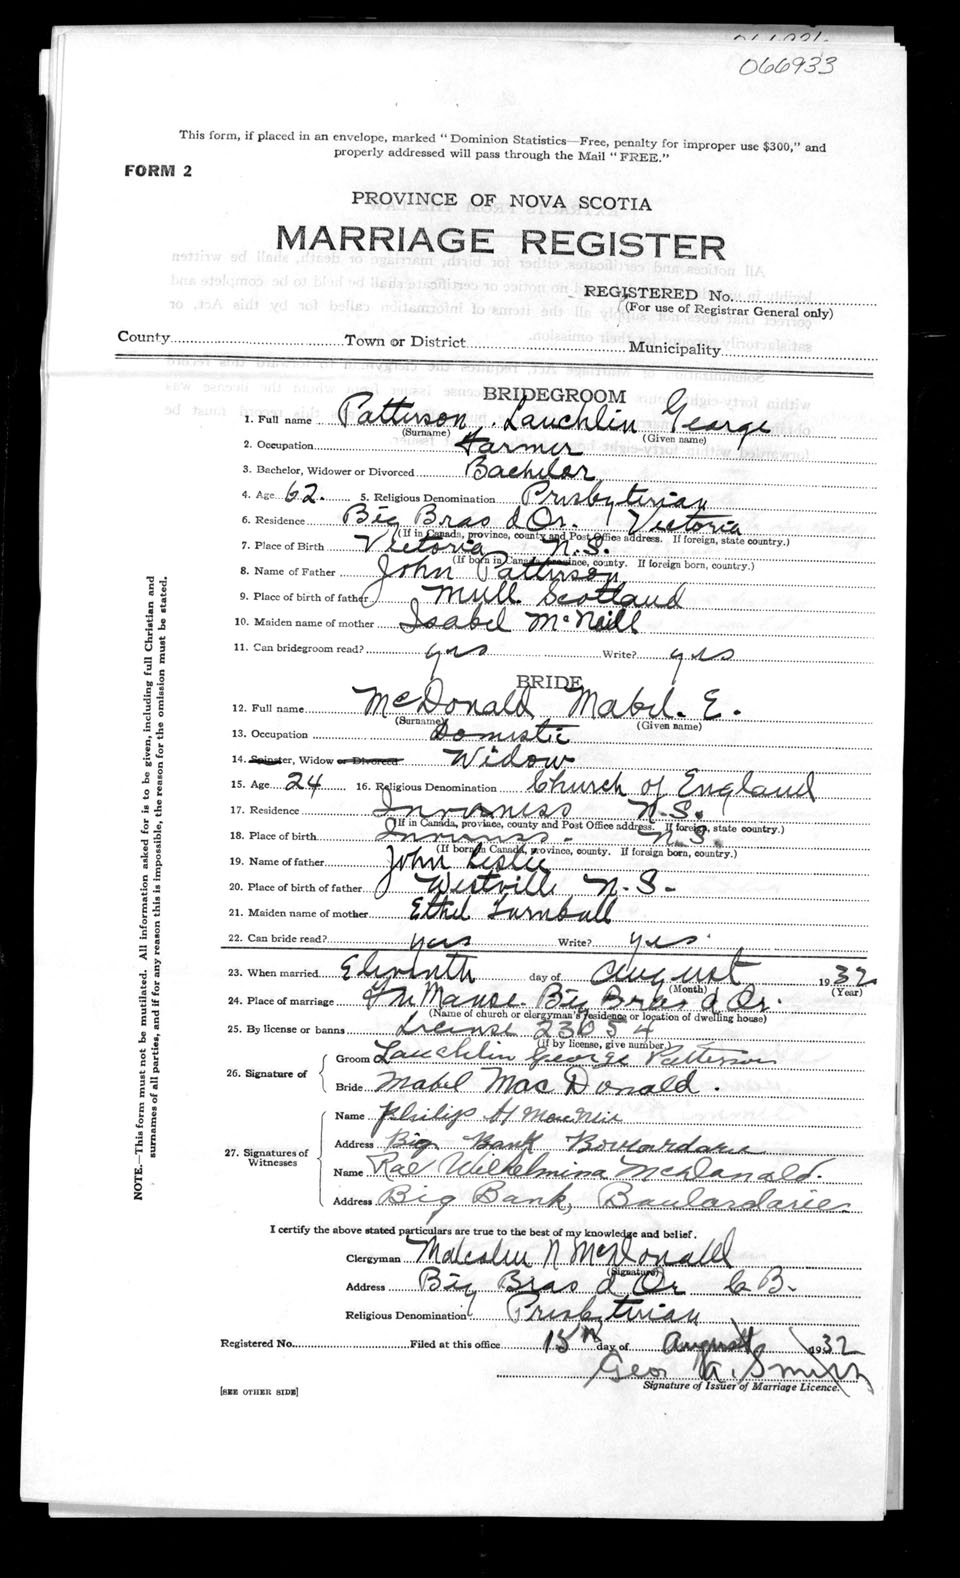 066933
This form, if placed in an envelope, marked "Dominion Statistics—Free, penalty for improper use $300," and
properly addressed will pass through the Mail "FREE."
FORM 2
PROVINCE OF NOVA SCOTIA
MARRIAGE REGISTER
REGISTERED No.
(For use of Registrar General only)
County Town or District Municipality
BRIDEGROOM
1. Full name Patterson Lauchlin George
(Surname) (Given name)
2. Occupation Farmer
3. Bachelor, Widower or Divorced Bachelor
4. Age 62. 5. Religious Denomination Presbyterian
6. Residence Big Bras d Or. Victoria
(If in Canada, province, county and Post Office address. If foreign, state country.)
7. Place of Birth Victoria N.S.
(If born in Canada, province, county. If foreign born, country.)
8. Name of Father John Patterson
9. Place of birth of father Mull Scotland
10. Maiden name of mother Isabel McNeill
11. Can bridegroom read? yes Write? yes
BRIDE
12. Full name McDonald Mabel. E.
(Surname) (Given name)
13. Occupation Domestic
14. Spinster, Widow or Divorced Widow
15. Age 24 16. Religious Denomination Church of England
17. Residence Inverness N.S.
(If in Canada, province, county and Post Office address. If foreign, state country.)
18. Place of birth Inverness. N.S.
(If born in Canada, province, county. If foreign born, country.)
19. Name of father John Leslie
20. Place of birth of father Westville N.S.
21. Maiden name of mother Ethel Turnbull
22. Can bride read? yes Write? yes
23. When married Eleventh day of August 1932
(Month) (Year)
24. Place of marriage The Manse. Big Bras d Or.
(Name of church or clergyman's residence or location of dwelling house)
25. By license or banns License 23654
(If by license, give number.)
26. Signature of
Groom Lauchlin George Patterson
Bride Mabel MacDonald.
27. Signatures of Witnesses
Name Philip H
Address Big Bank Boulardarie
Name Rae Wilhelmina McDonald.
Address Big Bank, Boulardarie
I certify the above stated particulars are true to the best of my knowledge and belief.
Clergyman Malcolm N McDonald
(Signature)
Address Big Bras d Or C.B.
Religious Denomination Presbyterian
Registered No. Filed at this office 15 day of August 1932
Geo A. Smith
Signature of Issuer of Marriage Licence.
[SEE OTHER SIDE]
NOTE.—This form must not be mutilated. All information asked for is to be given, including full Christian and
surnames of all parties, and if for any reason this is impossible, the reason for the omission must be stated.